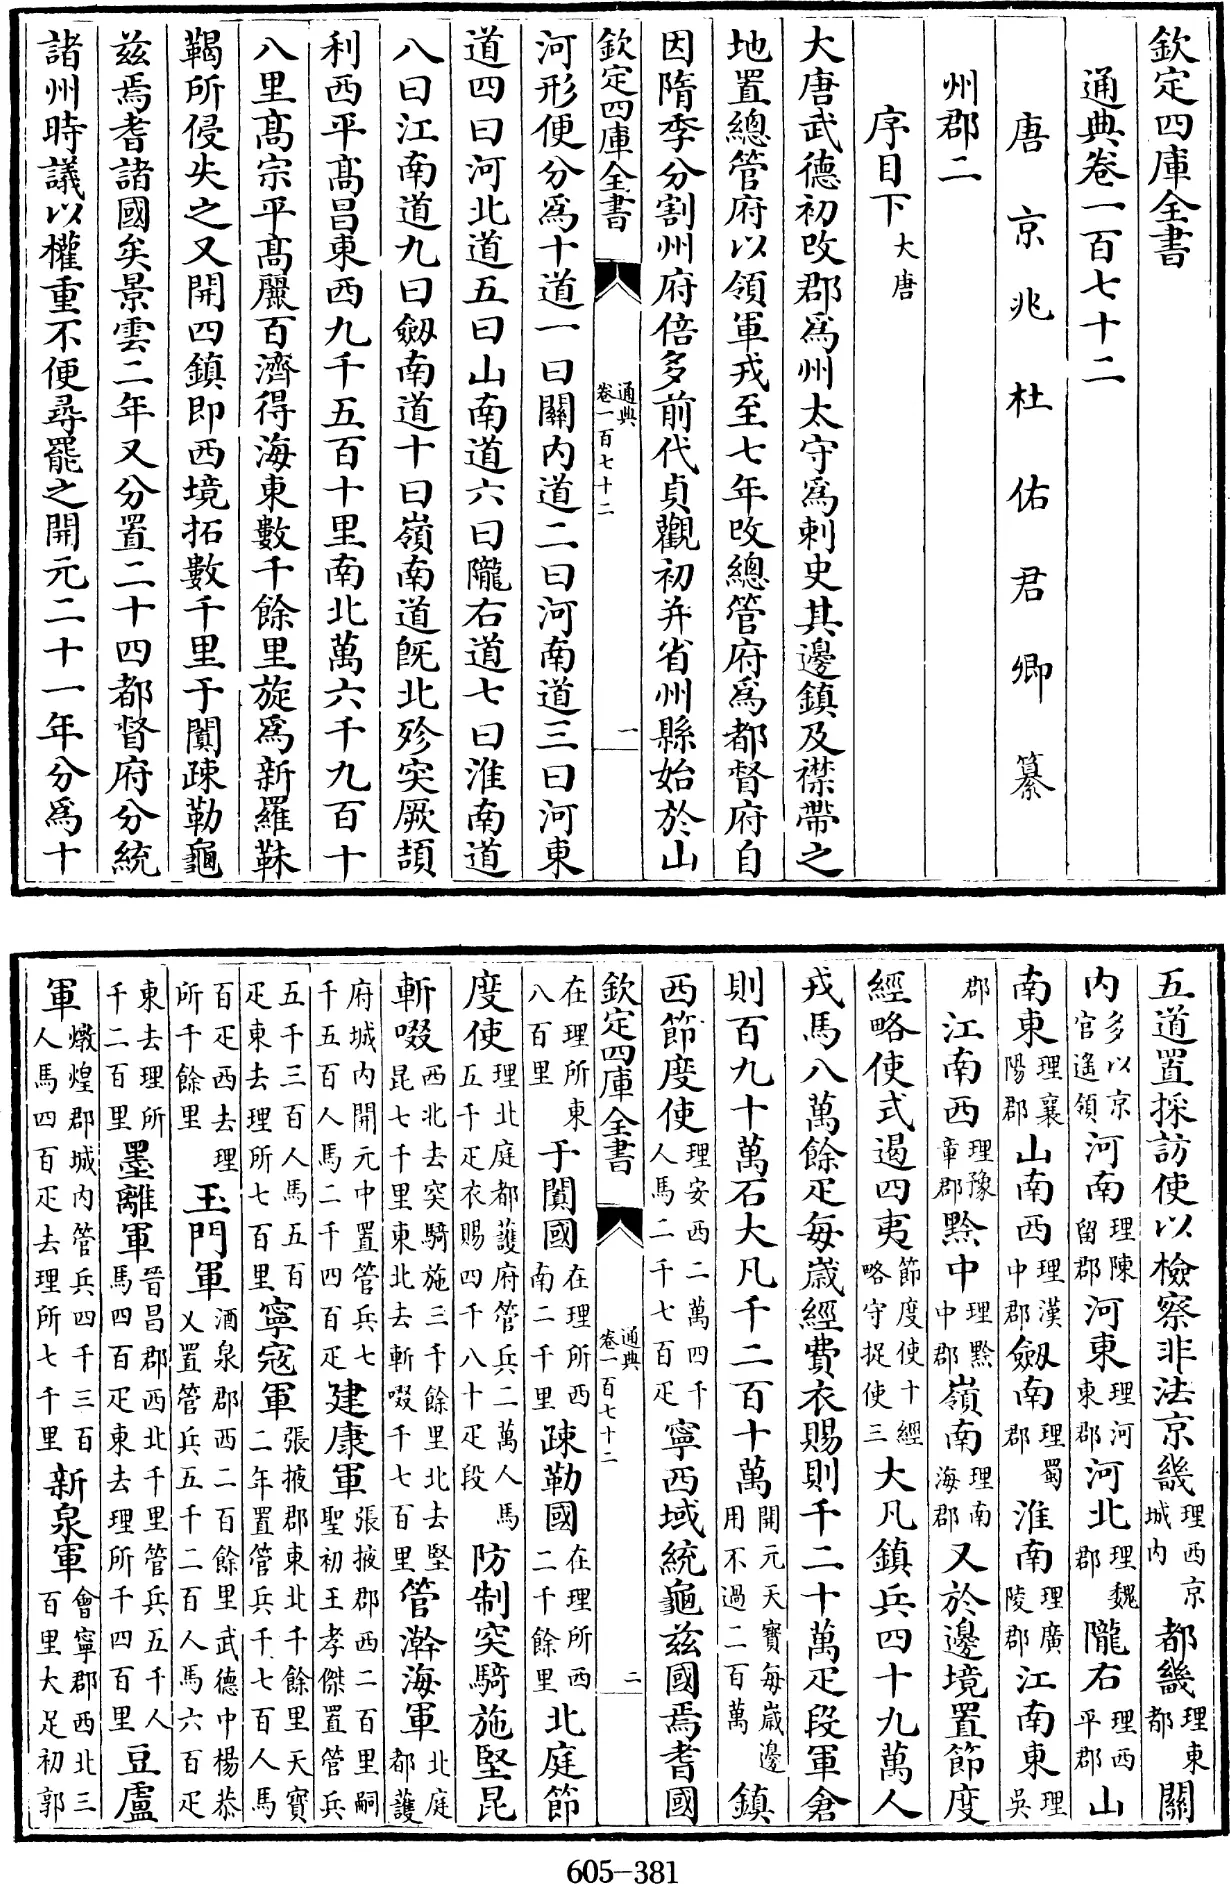 欽定四庫全書
通典卷一百七十二
唐京兆杜佑君卿纂
州郡二
序目下大唐
大唐武德初改郡為州太守為刺史其邊鎮及襟帶之
地置總管府以領軍戎至七年改總管府為都督府自
因隋季分割州府倍多前代貞觀初并省州縣始於山
欽定四庫全書 通典卷一百七十二 一
河形便分為十道一曰關內道二曰河南道三曰河東
道四曰河北道五曰山南道六曰隴右道七曰淮南道
八曰江南道九曰劒南道十曰嶺南道既北殄突厥頡
利西平髙昌東西九千五百十里南北萬六千九百十
八里髙宗平髙麗百濟得海東數千餘里旋為新羅靺
鞨所侵失之又開四鎮即西境拓數千里于闐疎勒龜
兹焉耆諸國矣景雲二年又分置二十四都督府分統
諸州時議以權重不便尋罷之開元二十一年分為十
五道置採訪使以檢察非法京畿理西京城內都畿理東都關
內多以京官遙領河南理陳留郡河東理河東郡河北理魏郡隴右理西平郡山
南東理襄陽郡山南西理漢中郡劒南理蜀郡淮南理廣陵郡江南東理吳
郡江南西理豫章郡黔中理黔中郡嶺南理南海郡又於邊境置節度
經略使式遏四夷節度使十經略守捉使三大凡鎮兵四十九萬人
戎馬八萬餘疋每歲經費衣賜則千二十萬疋段軍倉
則百九十萬石大凡千二百十萬開元天寶每歲邊用不過二百萬鎮
西節度使理安西二萬四千人馬二千七百疋寧西域統龜兹國焉耆國
欽定四庫全書 通典卷一百七十二 二
在理所東八百里于闐國在理所西南二千里疎勒國在理所西二千餘里北庭節
度使理北庭都護府管兵二萬人馬五千疋衣賜四千八十疋段防制突騎施堅昆
斬啜西北去突騎施三千餘里北去堅昆七千里東北去斬啜千七百里管瀚海軍北庭都護
府城內開元中置管兵七千五百人馬二千四百疋建康軍張掖郡西二百里嗣聖初王孝傑置管兵
五千三百人馬五百疋東去理所七百里寧寇軍張掖郡東北千餘里天寶二年置管兵千七百人馬
百疋西去理所千餘里玉門軍酒泉郡西二百餘里武德中楊恭乂置管兵五千二百人馬六百疋
東去理所千二百里墨離軍晉昌郡西北千里管兵五千人馬四百疋東去理所千四百里豆盧
軍燉煌郡城內管兵四千三百人馬四百疋去理所七千里新泉軍會寧郡西北三百里大足初郭
605-381